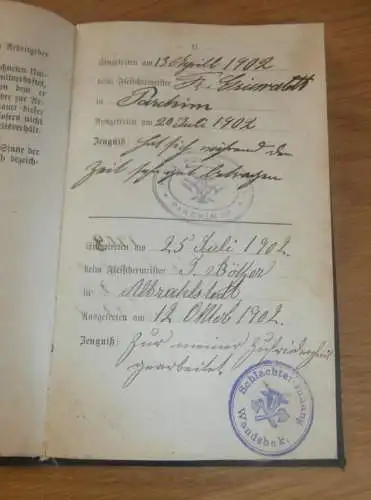 n Arbeitgeber
chneten Nu-
er zur Ar-
ofern nicht
Sinne der
bezeich-
11
Eingetreten am 13 Aprill 1902
beim Fleischermeister Fr. Grimwaldt
in Parchim
Ausgetreten am 20 Juli 1902
Zeugniß: Hat sich während der
Zeit sehr gut betragen
PARCHIM
Eingetreten am 25 Juli 1902.
beim Fleischermeister J. Bötger
in Altrahlstedt
Ausgetreten am 12 Oktob 1902.
Zeugniß: Zur meiner Zufriedenheit
gearbeitet.
Schlachter-Innung
Wandsbek.